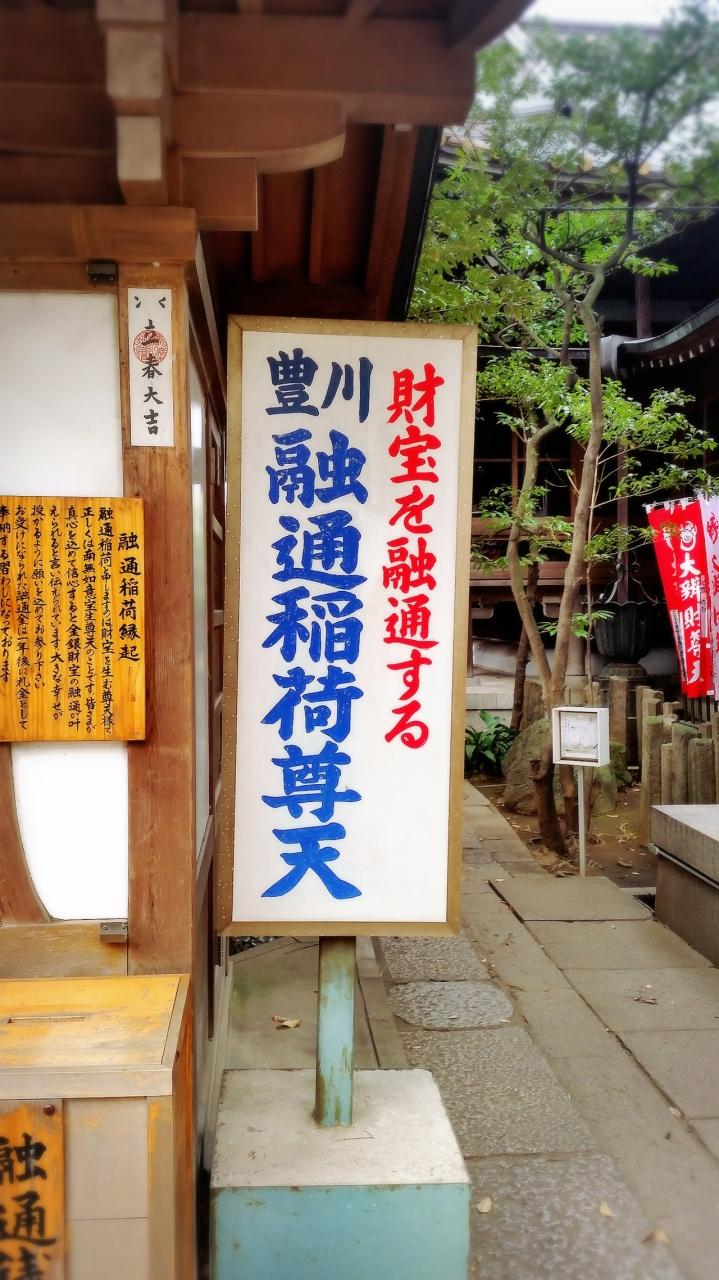 財宝を融通する
豊川
融通稲荷尊天
立春大吉
融通稲荷縁起
融通稲荷と申しますのは財宝を生む尊天様で
正しくは南無如意宝生尊天のことです 皆さまが
真心を込めて信心すると金銀財宝の融通が叶
えられると言い伝えられています 大きな幸せが
授かるように願いを込めてお参り下さい
お受けになられた融通金は一年後に礼金として
奉納する習わしになっております
大辨財尊天
融通銭